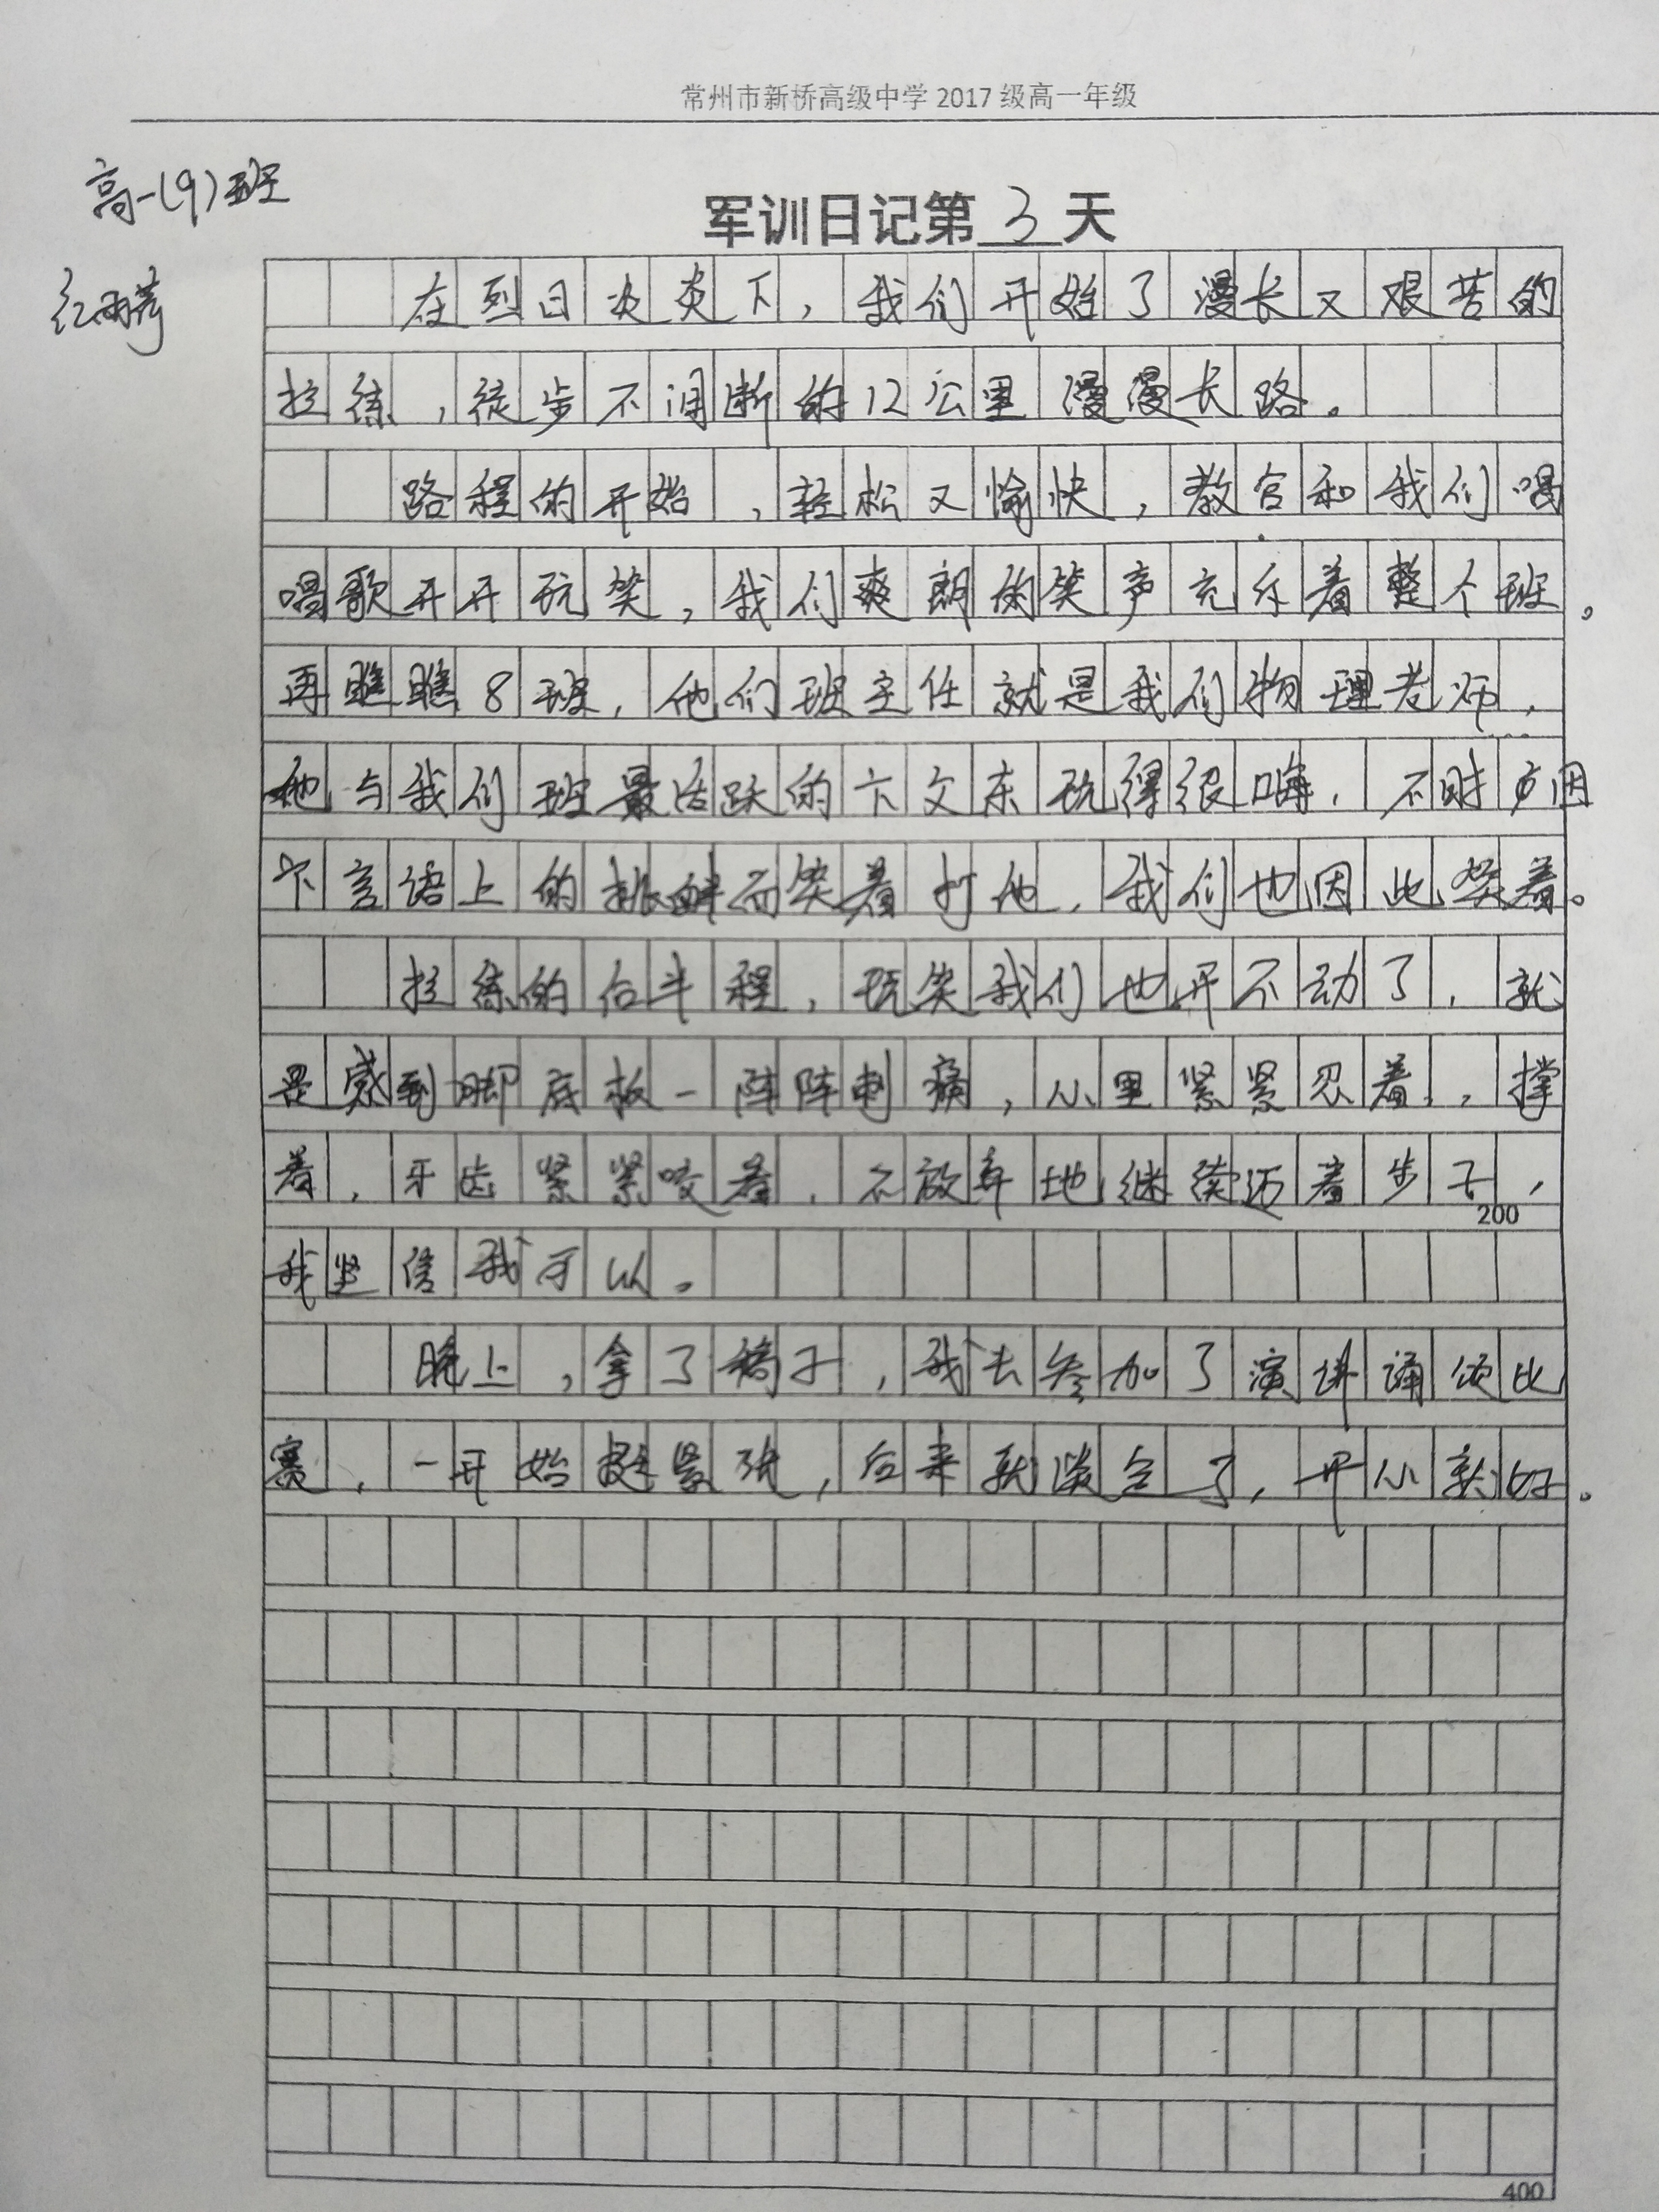 常州市新桥高级中学 2017 级高一年级
高一(9)班
军训日记第3天
在烈日炎炎下，我们开始了漫长又艰苦的
拉练，徒步不间断的12公里漫漫长路。
路程的开始，轻松又愉快，教官和我们唱
唱歌开开玩笑，我们爽朗的笑声充斥着整个班。
再瞧瞧8班，他们班主任就是我们物理老师，
他与我们班最活跃的卞文东玩得很嗨，不时应因
卞言语上的挑衅而笑着打他，我们也因此笑着。
拉练的后半程，玩笑我们也开不动了，就
是感到脚底板一阵阵刺痛，心里紧紧忍着，撑
着，牙齿紧紧咬着，不放弃地继续迈着步子，
200
我坚信我可以。
晚上，拿了稿子，我去参加了演讲诵颂比
赛，一开始挺紧张，后来就淡定了，开心就好。
400